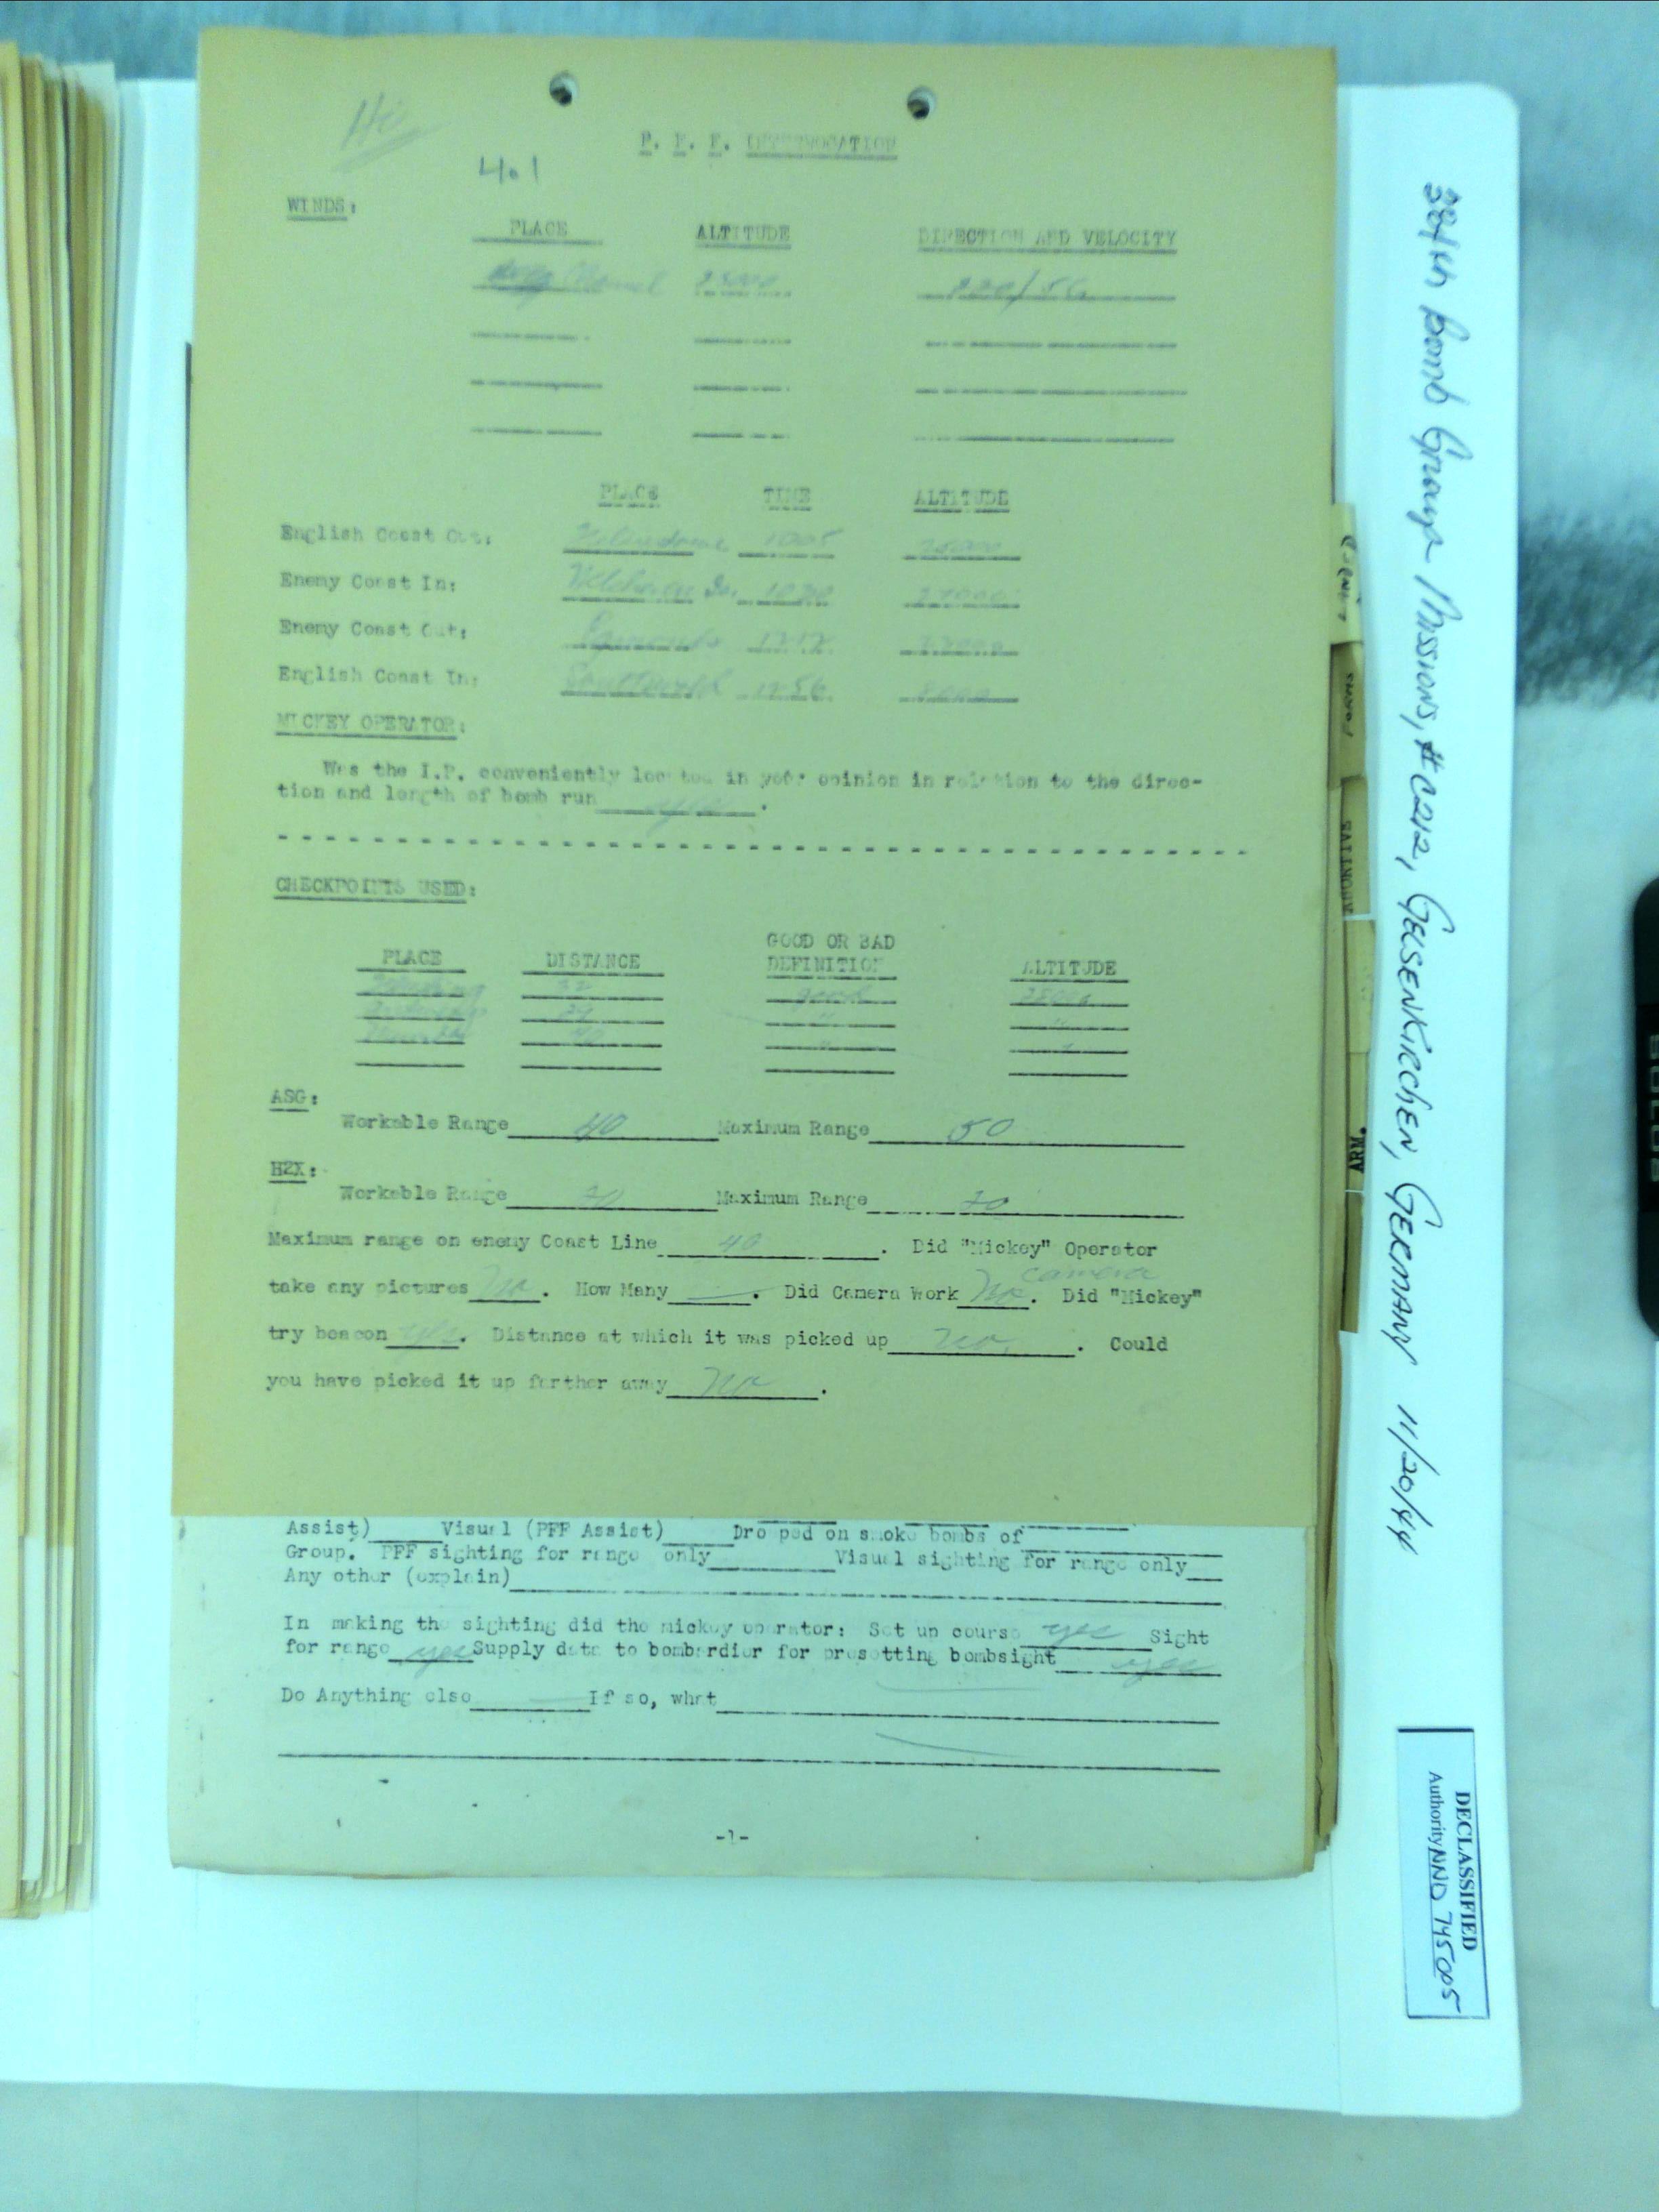 Hi
401
P. F. F. INTERROGATION
WINDS:
PLACE ALTITUDE DIRECTION AND VELOCITY
Channel 25000 220/56
PLACE TIME ALTITUDE
English Coast Out: 1005
Enemy Coast In: 1030 27000
Enemy Coast Out: Egmond 1212
English Coast In: Southwold 1256
MICKEY OPERATOR:
Was the I.P. conveniently located in your opinion in relation to the direc-
tion and length of bomb run yes.
CHECKPOINTS USED:
PLACE DISTANCE GOOD OR BAD DEFINITION ALTITUDE
32 good
" "
"
ASG:
Workable Range 40 Maximum Range 50
H2X:
Workable Range Maximum Range 70
Maximum range on enemy Coast Line 40. Did "Mickey" Operator
camera
take any pictures No. How Many —. Did Camera Work No. Did "Mickey"
try beacon yes. Distance at which it was picked up no. Could
you have picked it up further away No.
Assist) Visual (PFF Assist) Dropped on smoke bombs of
Group. PFF sighting for range only Visual sighting for range only
Any other (explain)
In making the sighting did the mickey operator: Set up course yes Sight
for range yes Supply data to bombardier for presetting bombsight yes
Do Anything else — If so, what
-1-
384th Bomb Group Missions, #C212, GELSENKIRCHEN, GERMANY 11/20/44
FORMS
ABORTIVE
ARM.
DECLASSIFIED
Authority NND 745005